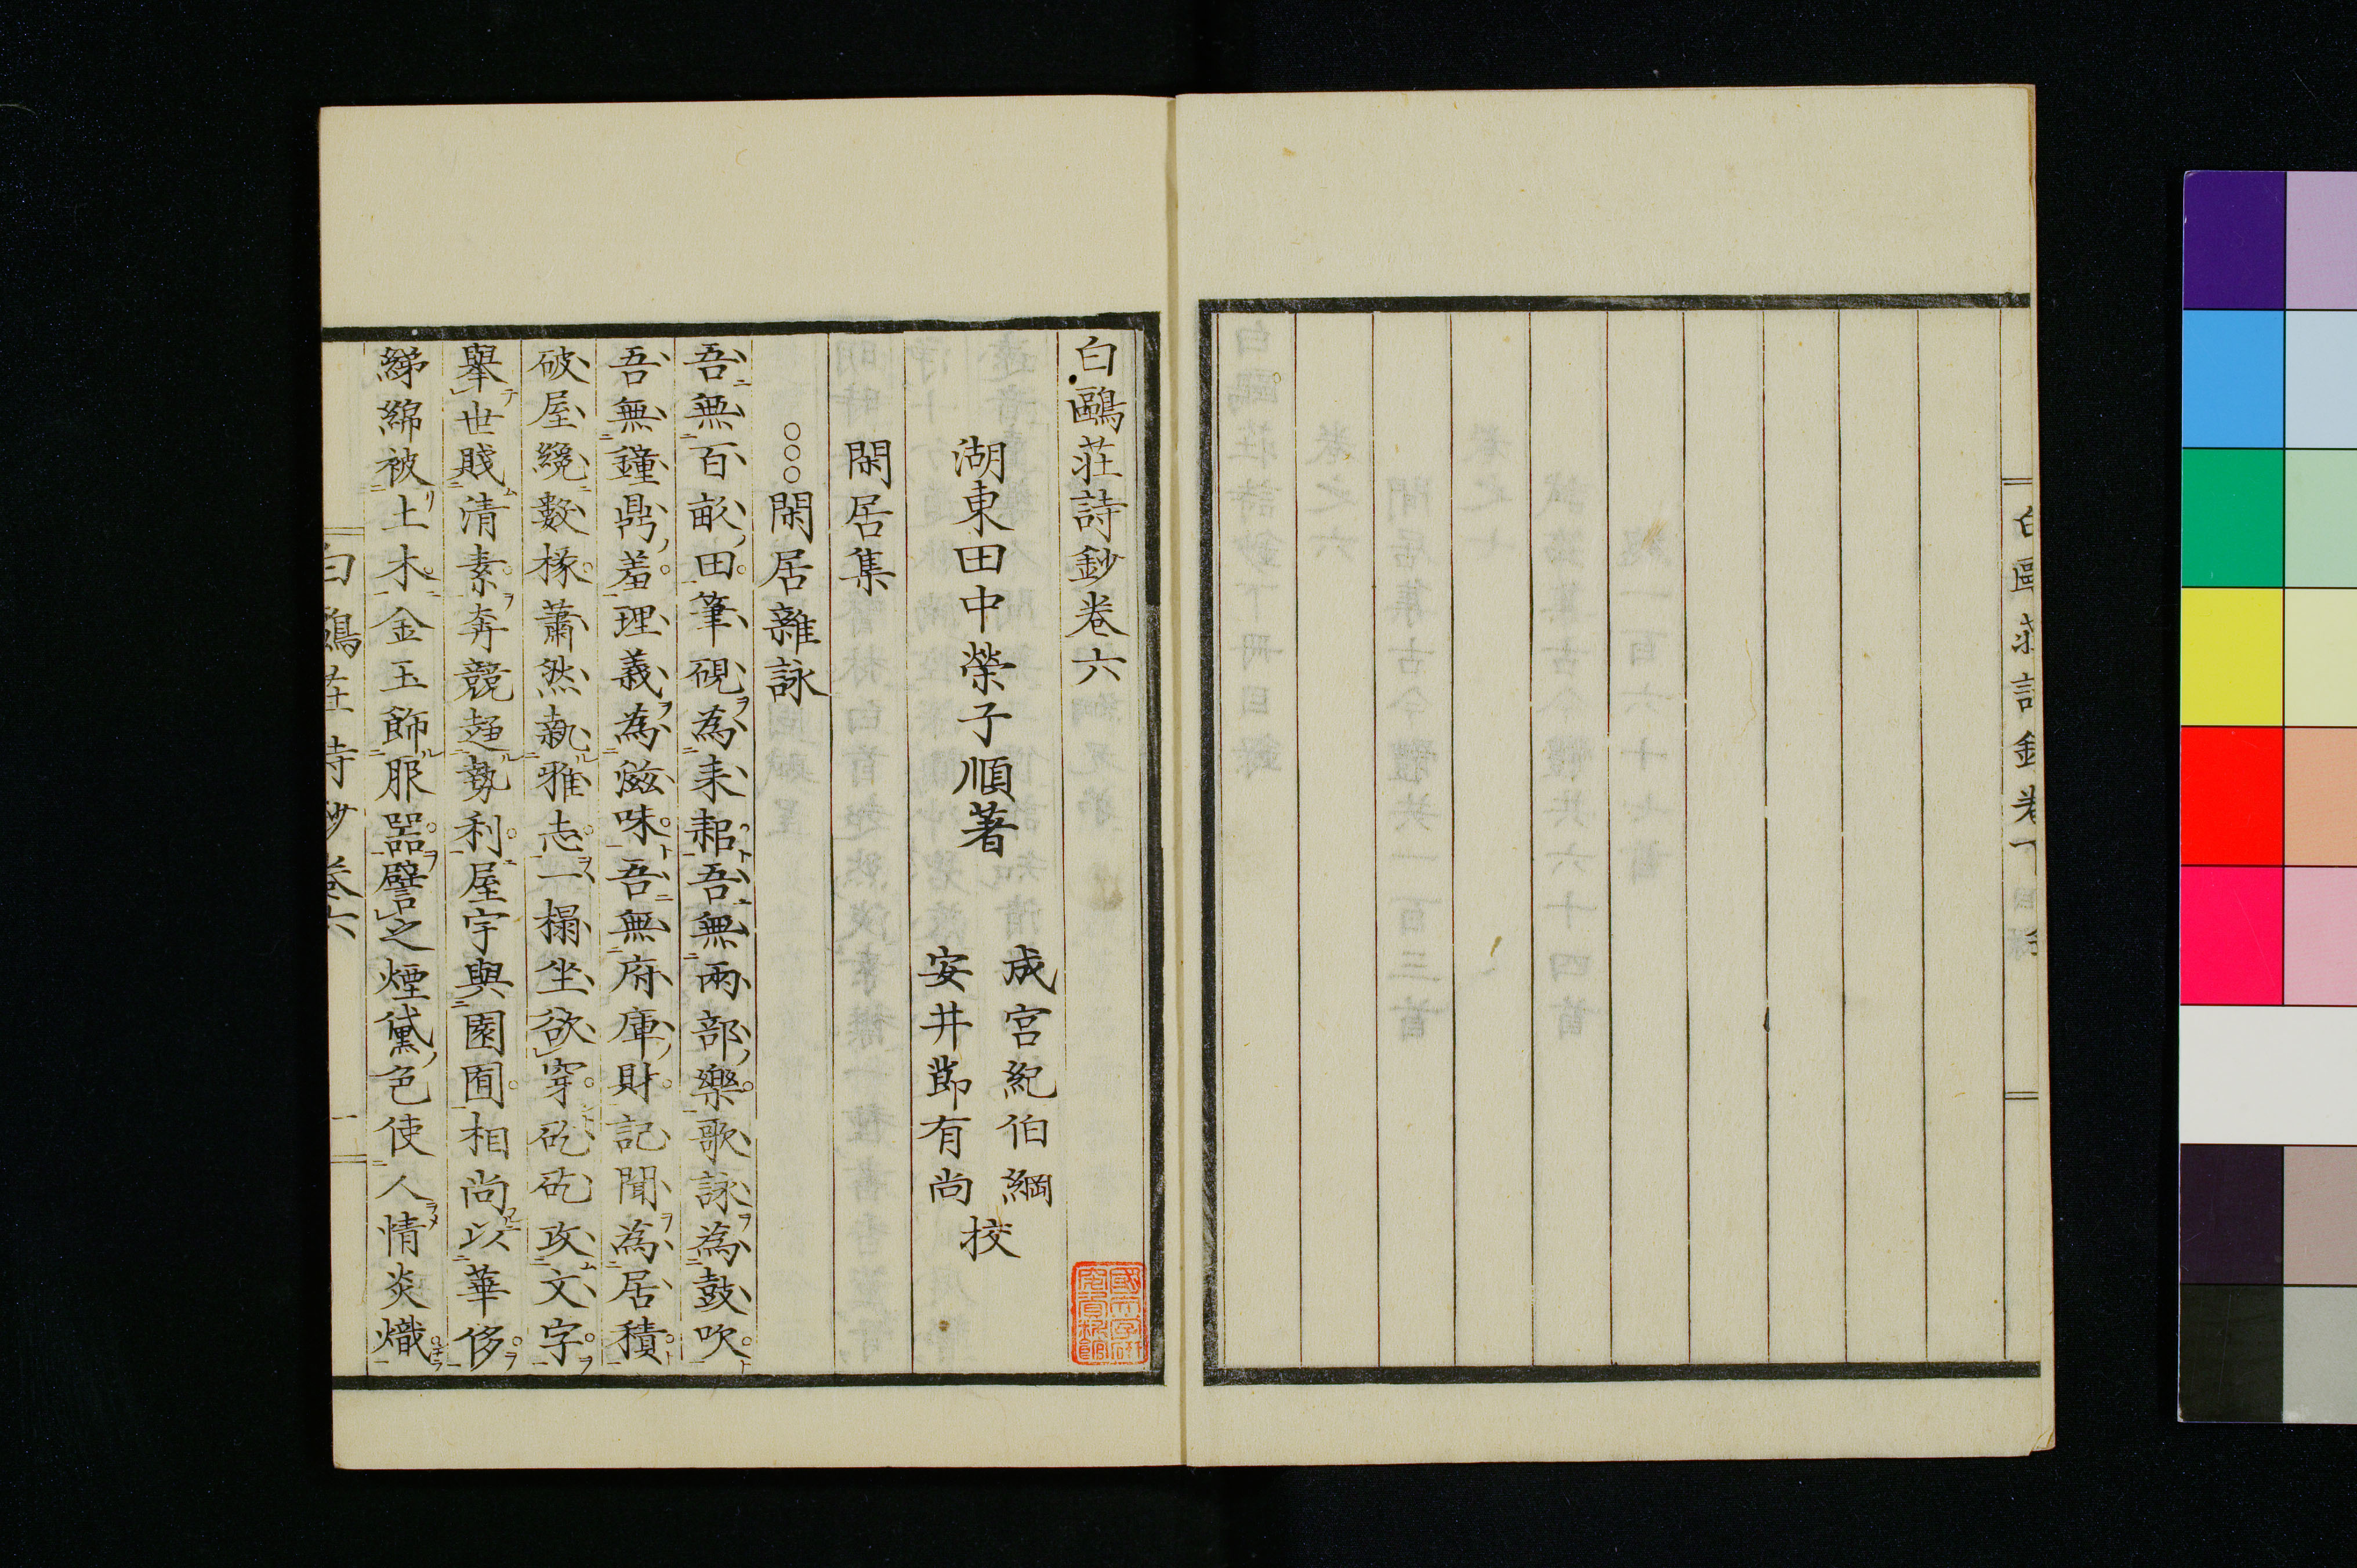 白鷗莊詩鈔卷六
湖東田中榮子順著
成宮紀伯綱
安井節有尚
挍
閑居集
○○○閑居雜詠
吾無百畝田筆硯為耒耜吾無兩部樂歌詠為鼓吹
吾無鐘鼎羞理義為滋味吾無府庫財記聞為居積
破屋纔數椽蕭然執雅志一榻坐欲穿矻矻攻文字
舉世賤清素奔競趨勢利屋宇與園囿相尚以華侈
綈綿被土木金玉飾服器譬之煙黛色使人情炎熾
白鷗莊詩鈔 卷六 一